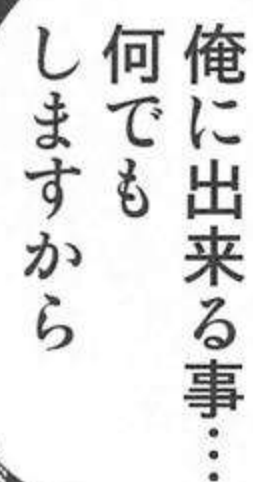 俺に出来る事…
何でも
しますから